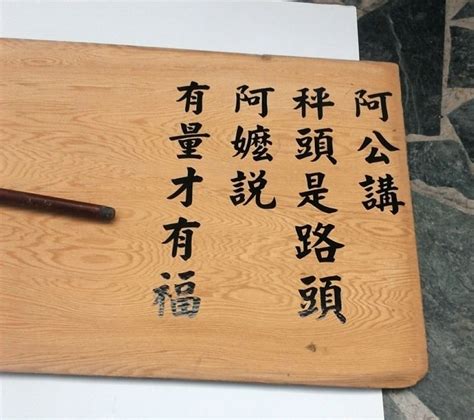 阿公講
秤頭是路頭
阿嬤説
有量才有福